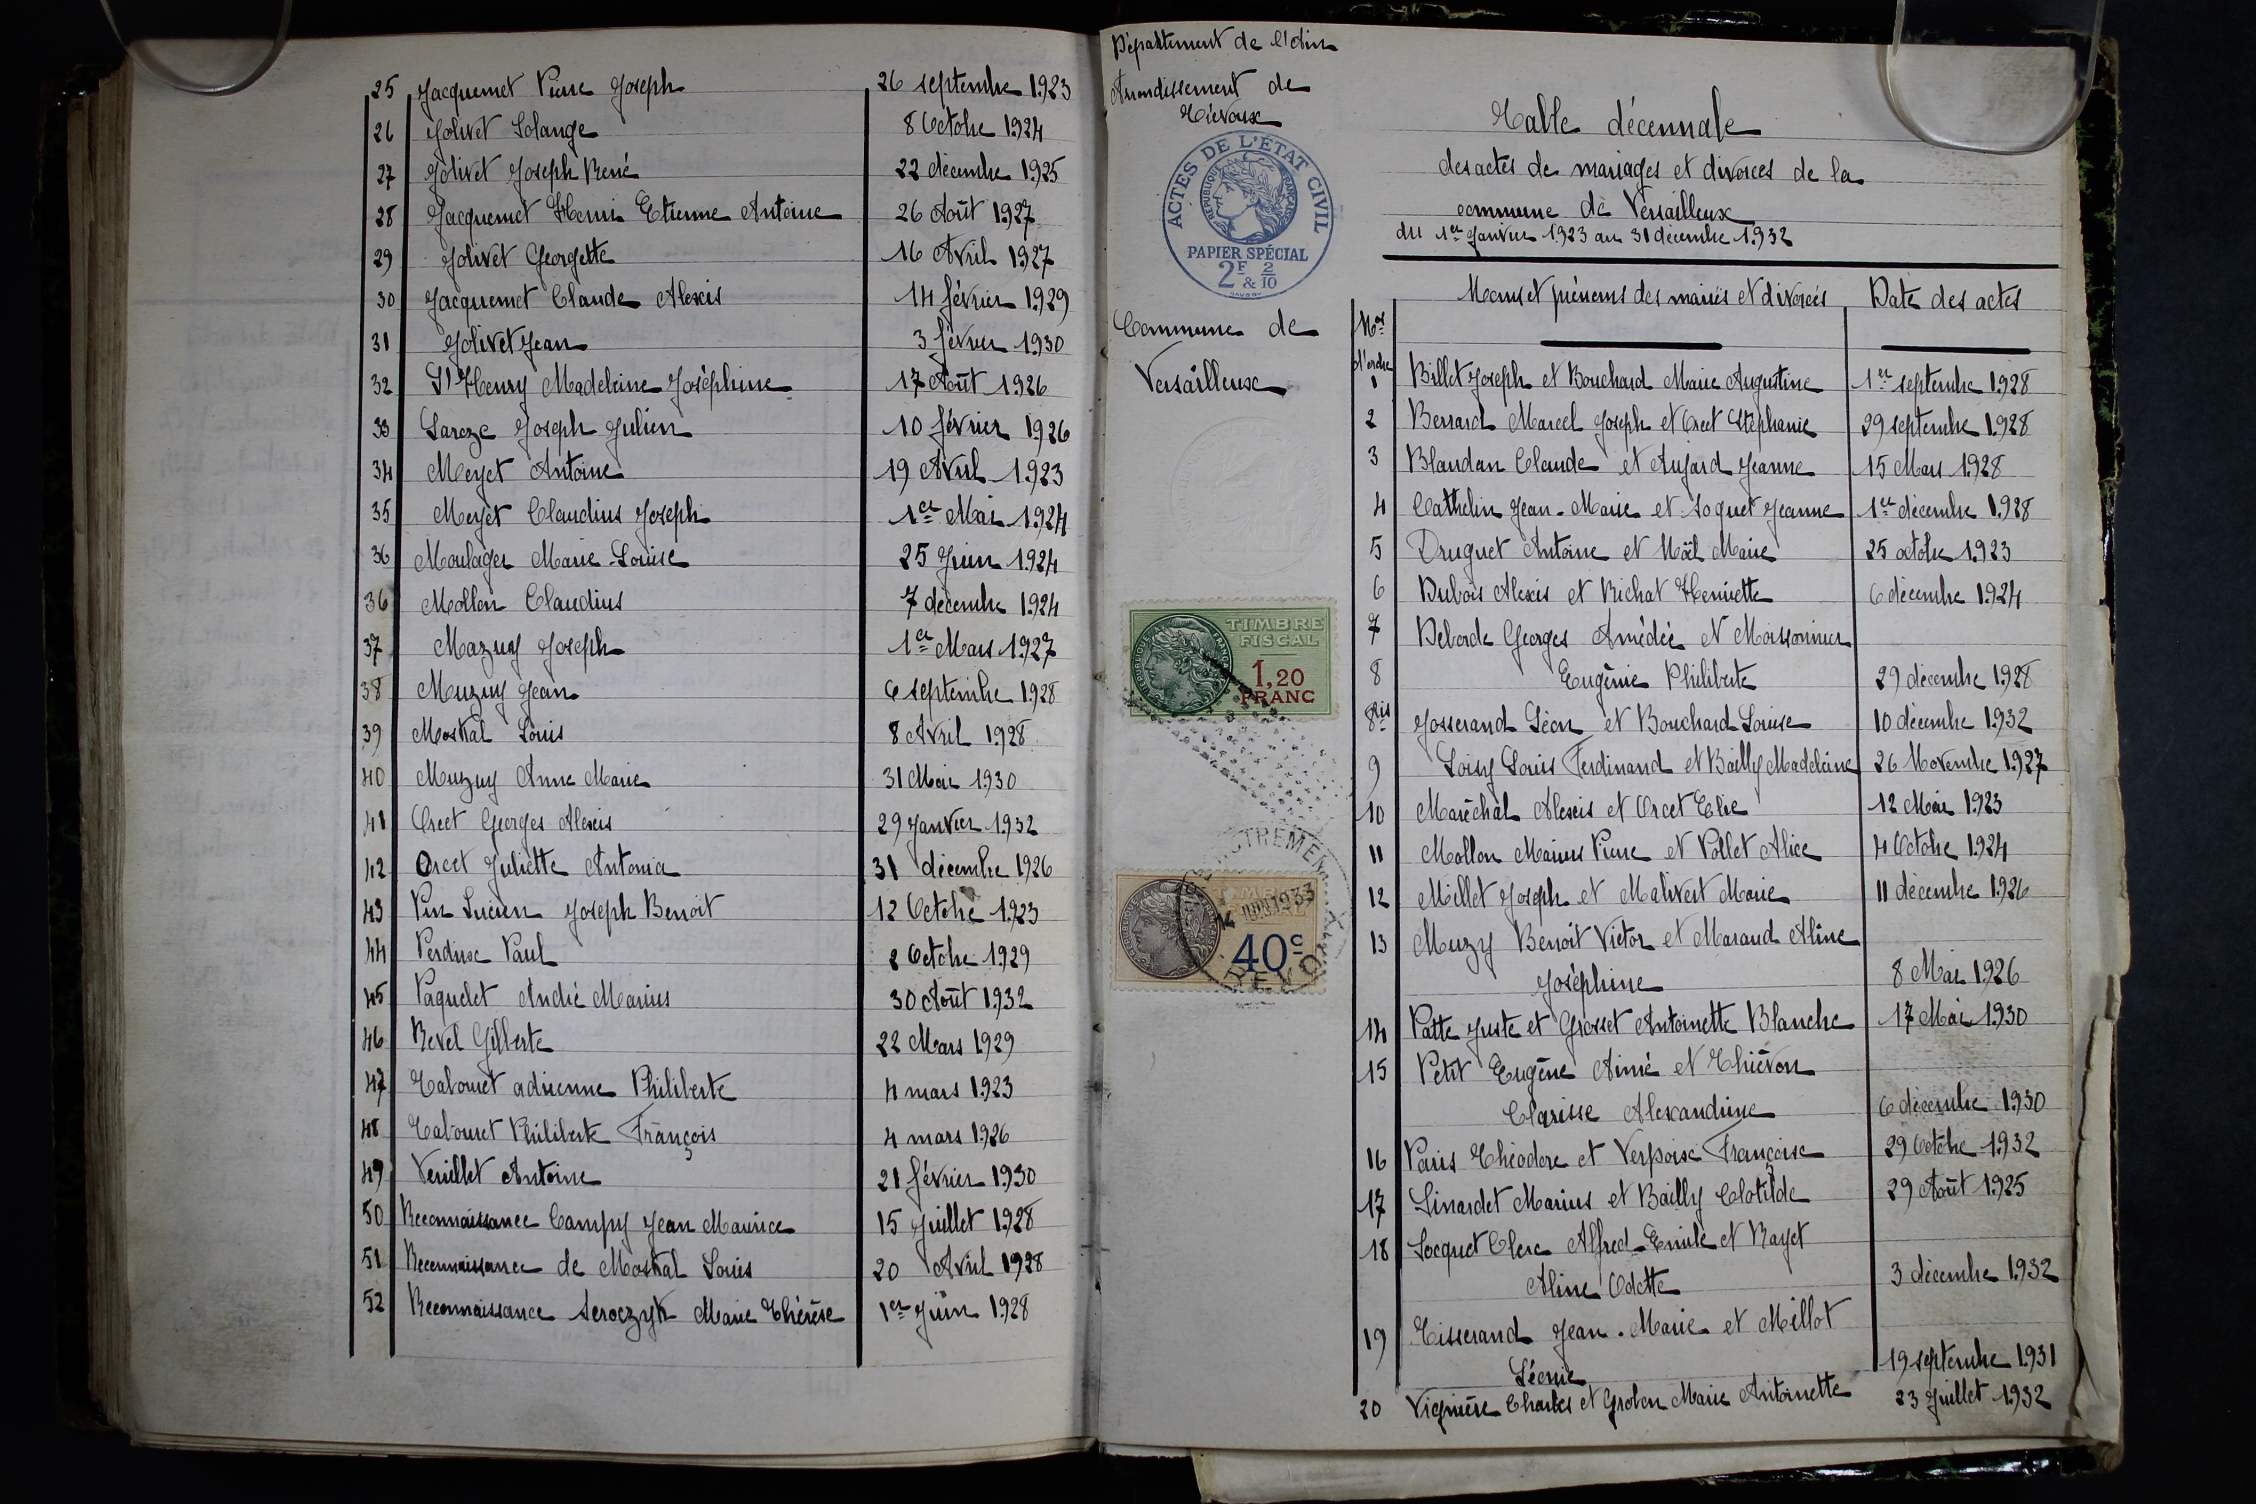 25 Jacquemet Pierre Joseph 26 septembre 1923
26 Jolivet Solange 8 Octobre 1924
27 Jolivet Joseph René 22 décembre 1925
28 Jacquemet Henri Etienne Antoine 26 Août 1927
29 Jolivet Georgette 16 Avril 1927
30 Jacquemet Claude Alexis 14 février 1929
31 Jolivet Jean 3 février 1930
32 St Henry Madeleine Joséphine 17 Août 1926
33 Sarcze Joseph Julien 10 février 1926
34 Meyet Antoine 19 Avril 1923
35 Meyet Claudius Joseph 1er Mai 1924
36 Moulager Marie-Louise 25 Juin 1924
36 Mollon Claudius 7 décembre 1924
37 Mazuy Joseph 1er Mars 1927
38 Muzuy Jean 6 septembre 1928
39 Moskal Louis 8 Avril 1928
40 Muzuy Anne Marie 31 Mai 1930
41 Orcet Georges Alexis 29 Janvier 1932
42 Orcet Juliette Antonia 31 décembre 1926
43 Pin Lucien Joseph Benoit 12 Octobre 1923
44 Perdrix Paul 2 Octobre 1929
45 Paquelet André Marius 30 Août 1932
46 Revel Gilberte 22 Mars 1929
47 Tabouret adrienne Philiberte 4 mars 1923
48 Tabouret Philiberte François 4 mars 1926
49 Venillet Antoine 21 février 1930
50 Reconnaissance Campy Jean Maurice 15 Juillet 1928
51 Reconnaissance de Moskal Louis 20 Avril 1928
52 Reconnaissance Seroczyk Marie Thérèse 1er Juin 1928
Département de l'Ain
Arrondissement de
Trévoux
ACTES DE L'ÉTAT CIVIL
RÉPUBLIQUE FRANÇAISE
PAPIER SPÉCIAL
2F & 2/10
Commune de
Versailleux
TIMBRE
FISCAL
1,20
FRANC
1933
40c
Table décennale
des actes de mariages et divorces de la
commune de Versailleux
du 1er Janvier 1923 au 31 décembre 1932
Nos d'ordre Noms et prénoms des mariés et divorcés Date des actes
1 Billet Joseph et Bouchard Marie Augustine 1er septembre 1928
2 Bernard Marcel Joseph et Orcet Stéphanie 29 septembre 1928
3 Blandan Claude et Aujard Jeanne 15 Mars 1928
4 Cathelin Jean-Marie et Soquet Jeanne 1er décembre 1928
5 Druguet Antoine et Noël Marie 25 octobre 1923
6 Dubois Alexis et Richat Henriette 6 décembre 1924
7 Deborde Georges Amédée et Moissonnier
8 Eugénie Philiberte 29 décembre 1928
8bis Josserand Léon et Bouchard Louise 10 décembre 1932
9 Loisy Louis Ferdinand et Bailly Madeleine 26 Novembre 1927
10 Maréchal Alexis et Orcet Elie 12 Mai 1923
11 Mollon Marius Pierre et Pollet Alice 4 Octobre 1924
12 Millet Joseph et Malivert Marie 11 décembre 1926
13 Muzy Benoit Victor et Maraud Aline
Joséphine 8 Mai 1926
14 Patte Juste et Grosset Antoinette Blanche 17 Mai 1930
15 Petit Eugène Aimé et Thiévon
Clarisse Alexandrine 6 décembre 1930
16 Paris Théodore et Verpoix Françoise 29 Octobre 1932
17 Sinardet Marius et Bailly Clotilde 29 Août 1925
18 Socquet Clerc Alfred-Emile et Rayet
Aline Odette 3 décembre 1932
19 Tisserand Jean-Marie et Millot
Léonie 19 septembre 1931
20 Vignière Charles et Grolen Marie Antoinette 23 Juillet 1932